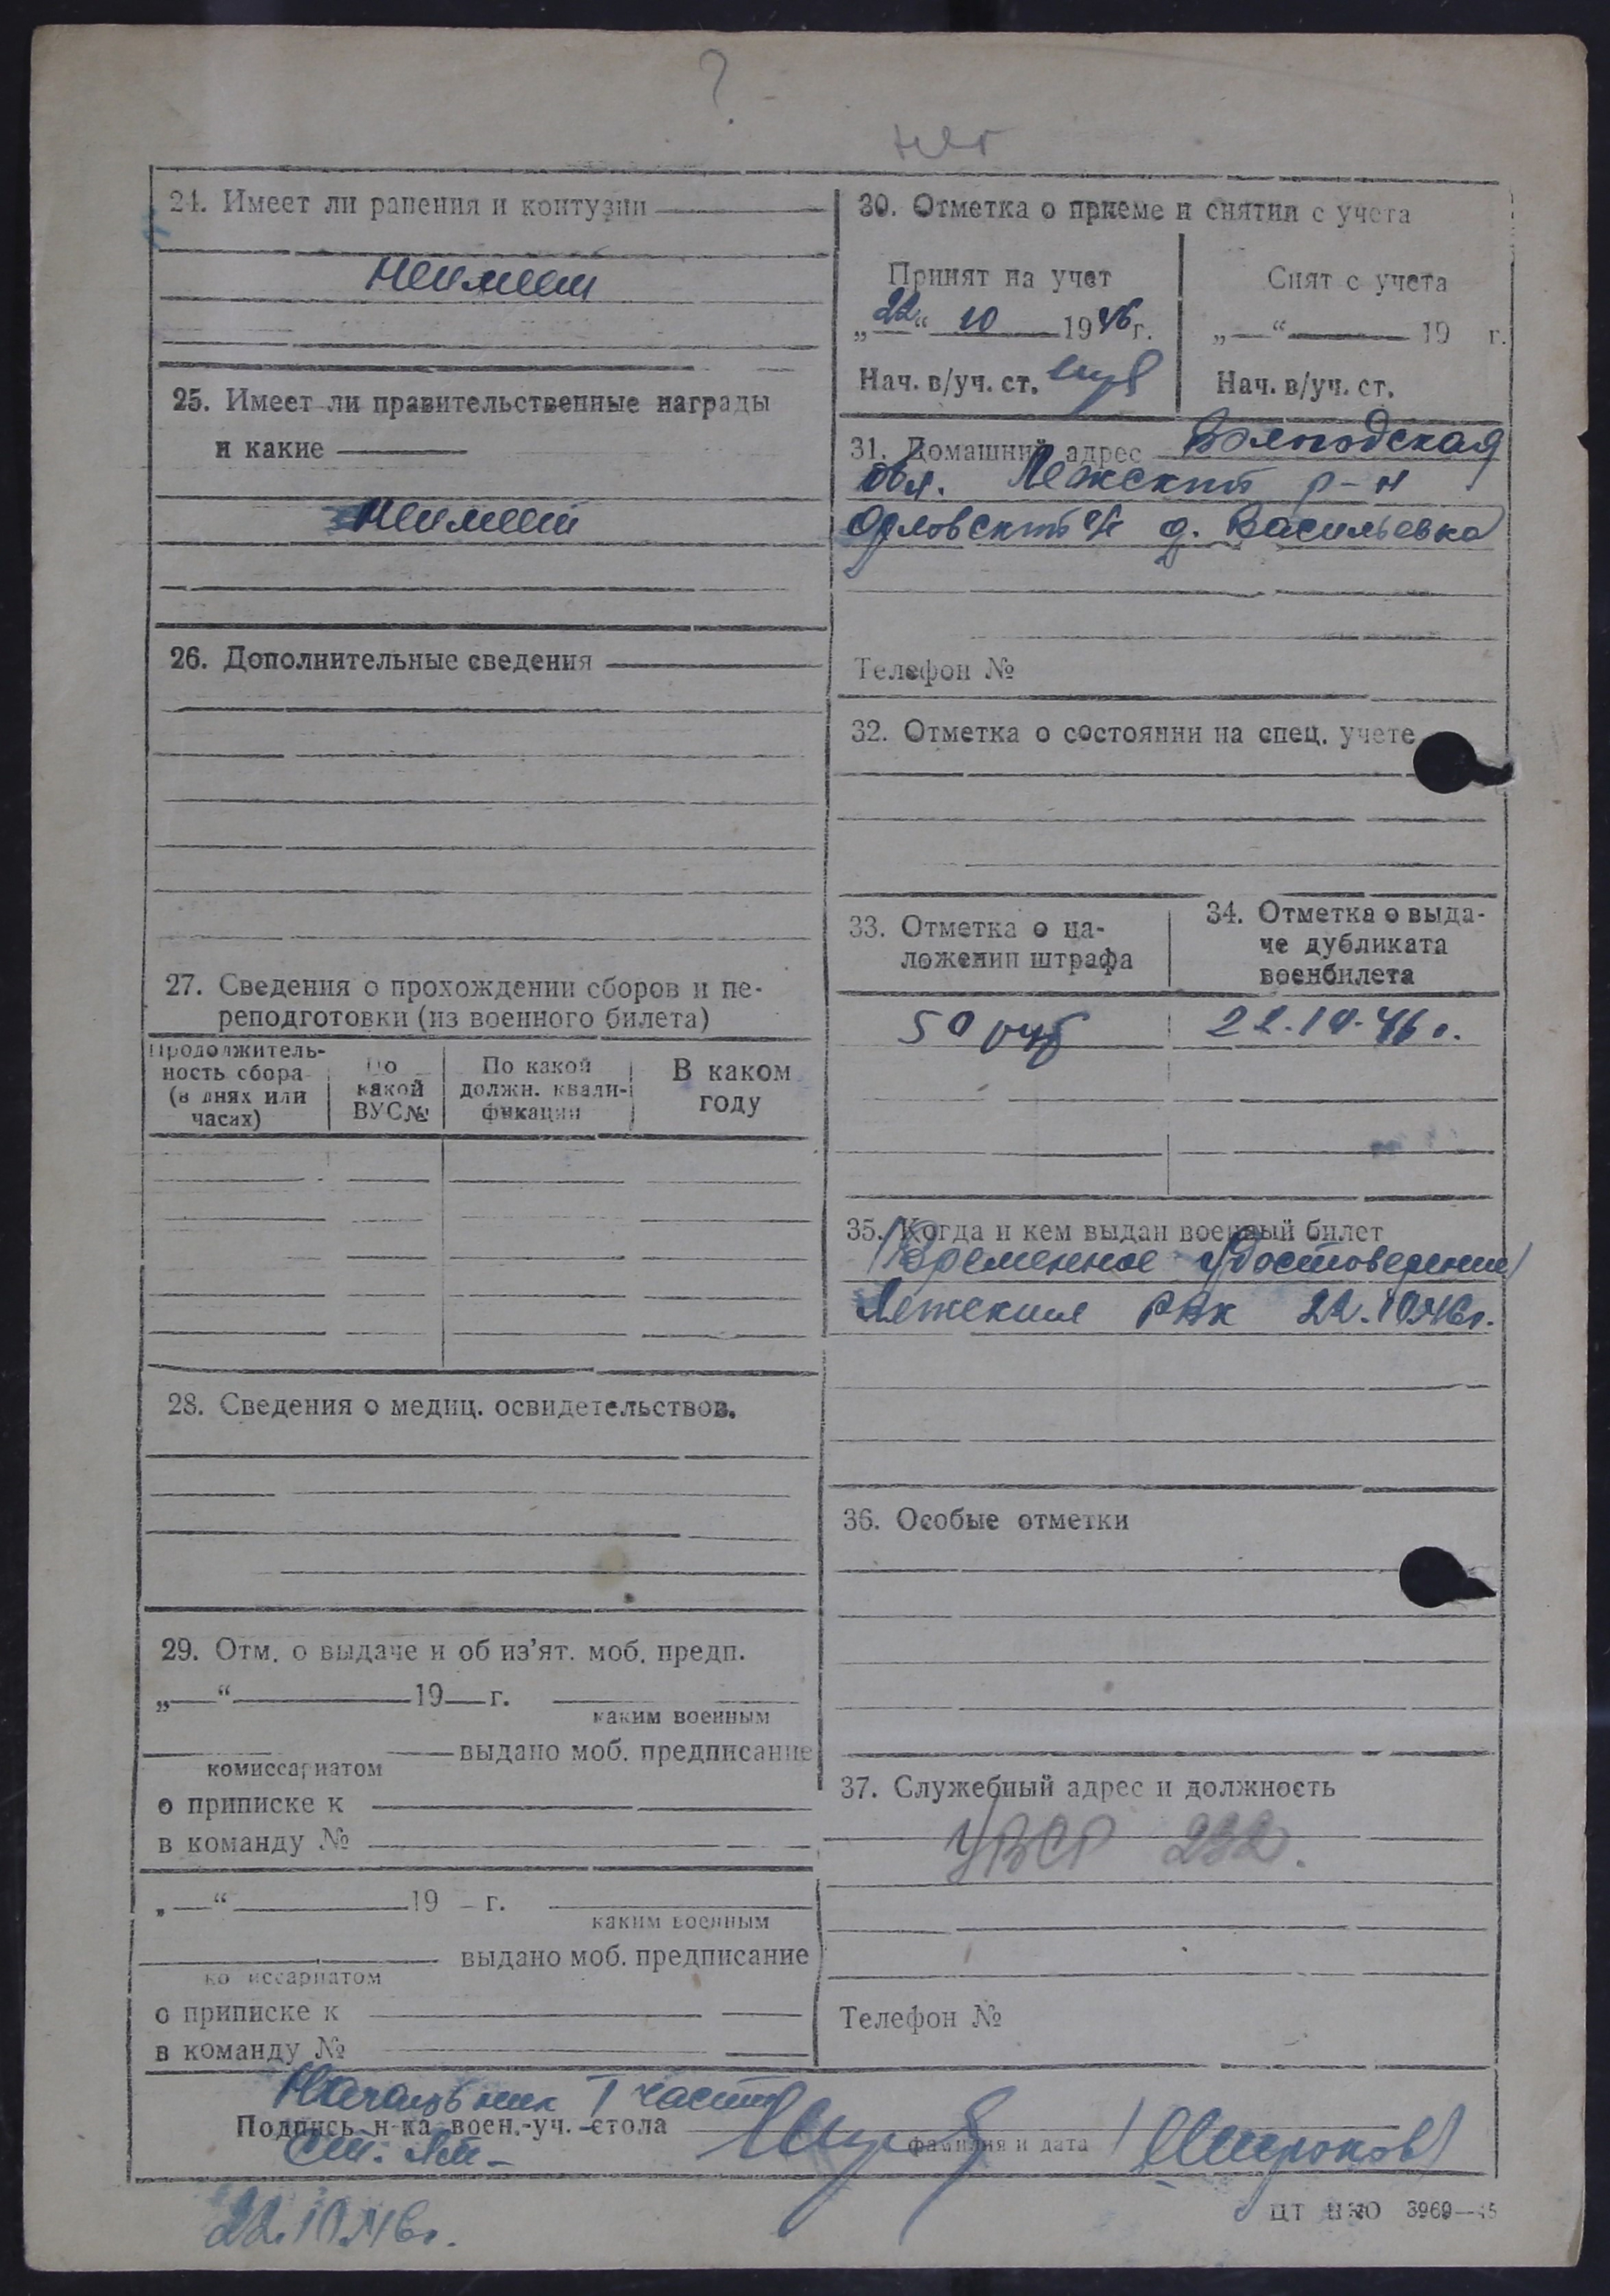 ?
нет
24. Имеет ли ранения и контузии
Неимеет
25. Имеет ли правительственные награды
и какие
Неимеет
26. Дополнительные сведения
27. Сведения о прохождении сборов и пе-
реподготовки (из военного билета)
Продолжитель-
ность сбора
(в днях или
часах)
По
какой
ВУС№
По какой
должн. квали-
фикации
В каком
году
28. Сведения о медиц. освидетельствов.
29. Отм. о выдаче и об из'ят. моб. предп.
„ “ 19 г.
каким военным
выдано моб. предписание
комиссариатом
о приписке к
в команду №
„ “ 19 г.
каким военным
выдано моб. предписание
ко иссариатом
о приписке к
в команду №
30. Отметка о приеме и снятии с учета
Принят на учет
„22“ 10 1946г.
Нач. в/уч. ст.
Снят с учета
„ “ 19 г.
Нач. в/уч. ст.
31. Домашний адрес Вологодская
обл. Лежский р-н
Орловский с/с д. Васильевка
Телефон №
32. Отметка о состоянии на спец. учете
33. Отметка о на-
ложении штрафа
50 руб
34. Отметка о выда-
че дубликата
военбилета
22.10.46г.
35. Когда и кем выдан военный билет
(Временное удостоверение)
Лежским РВК 22.10.46г.
36. Особые отметки
37. Служебный адрес и должность
УВСР 232.
Телефон №
Начальник I части
Подпись н-ка воен.-уч. стола
фамилия и дата
Ст. Лт- (Широков)
22.10.46г.
ЦТ НКО 3969—45